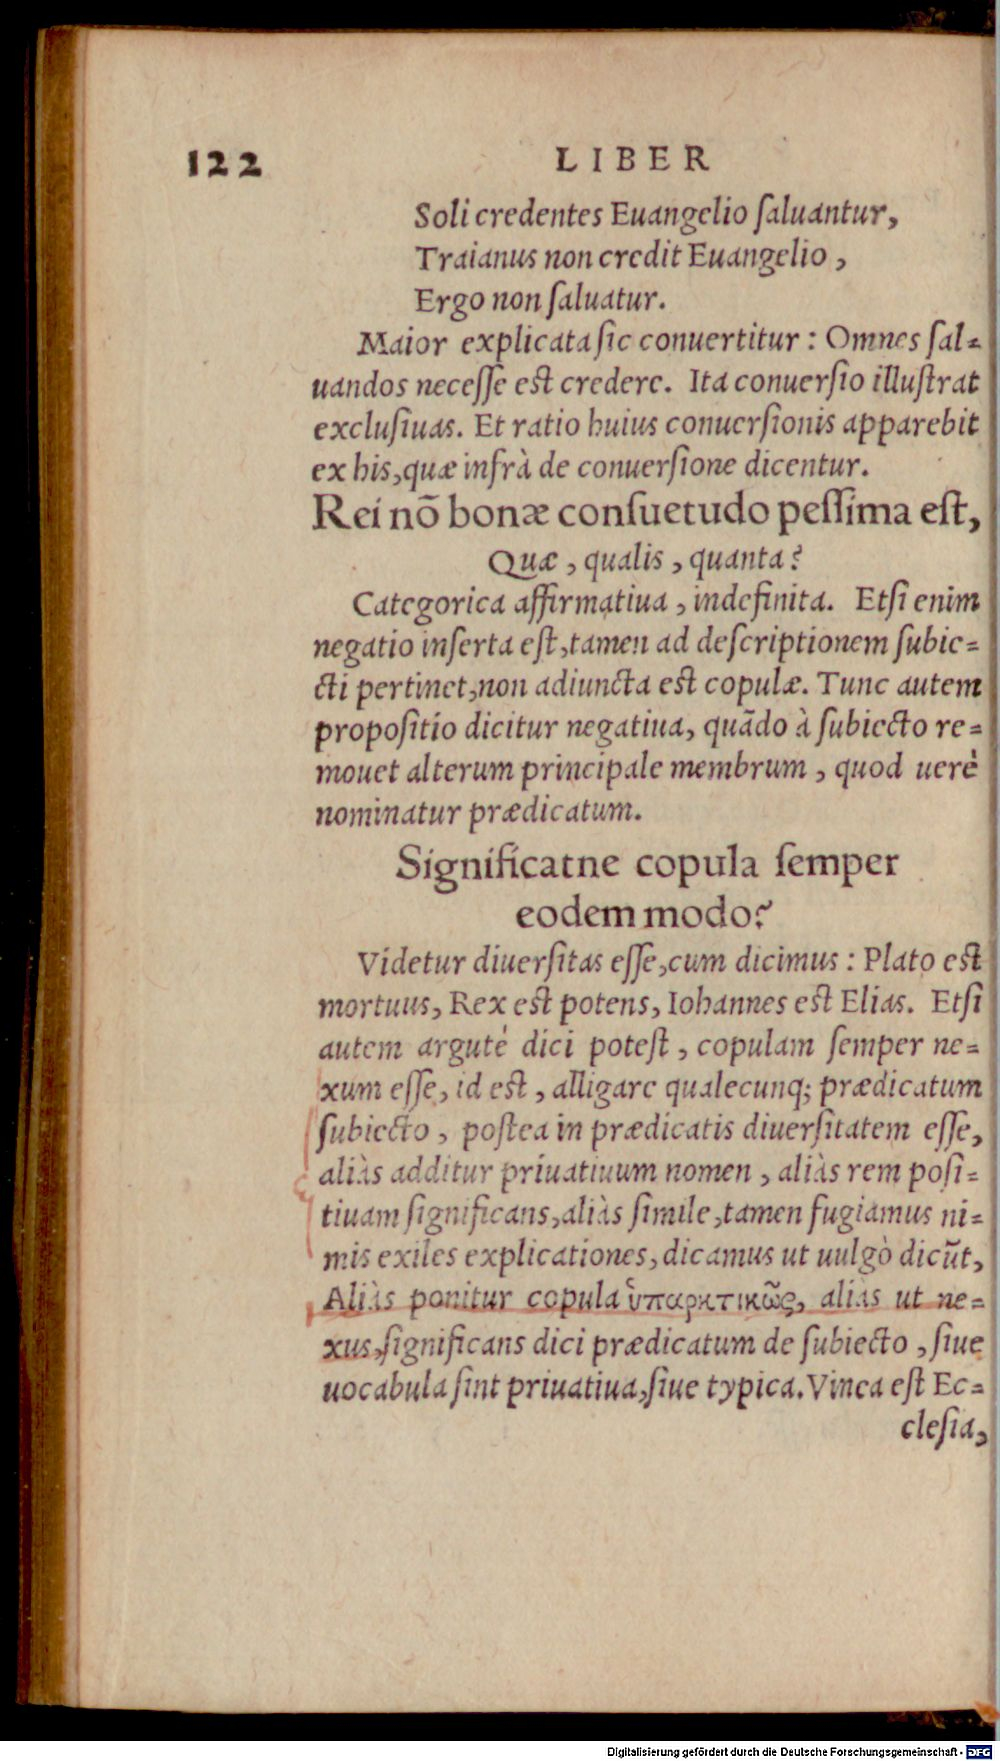 122 LIBER
Soli credentes Euangelio ſaluantur,
Traianus non credit Euangelio,
Ergo non ſaluatur.
Maior explicata ſic conuertitur: Omnes ſal=
uandos neceſſe est credere. Ita conuerſio illuſtrat
excluſiuas. Et ratio huius conuerſionis apparebit
ex his, quæ infrà de conuerſione dicentur.
Rei nō bonæ conſuetudo peſſima eſt,
Quæ, qualis, quanta?
Categorica affirmatiua, indefinita. Etſi enim
negatio inſerta eſt, tamen ad deſcriptionem ſubie=
cti pertinet, non adiuncta est copulæ. Tunc autem
propoſitio dicitur negatiua, quādo à ſubiecto re=
mouet alterum principale membrum, quod uerè
nominatur prædicatum.
Significatne copula ſemper
eodem modo?
Videtur diuerſitas eſſe, cum dicimus: Plato est
mortuus, Rex est potens, Iohannes est Elias. Etſi
autem argutè dici poteſt, copulam ſemper ne=
xum eſſe, id est, alligare qualecunq; prædicatum
ſubiecto, poſtea in prædicatis diuerſitatem eſſe,
aliàs additur priuatiuum nomen, aliàs rem poſi=
tiuam ſignificans, aliàs ſimile, tamen fugiamus ni=
mis exiles explicationes, dicamus ut uulgò dicūt,
Aliàs ponitur copula ὑπαρκτικῶς, aliàs ut ne=
xus, ſignificans dici prædicatum de ſubiecto, ſiue
uocabula ſint priuatiua, ſiue typica. Vinea eſt Ec=
cleſia,
Digitalisierung gefördert durch die Deutsche Forschungsgemeinschaft - DFG